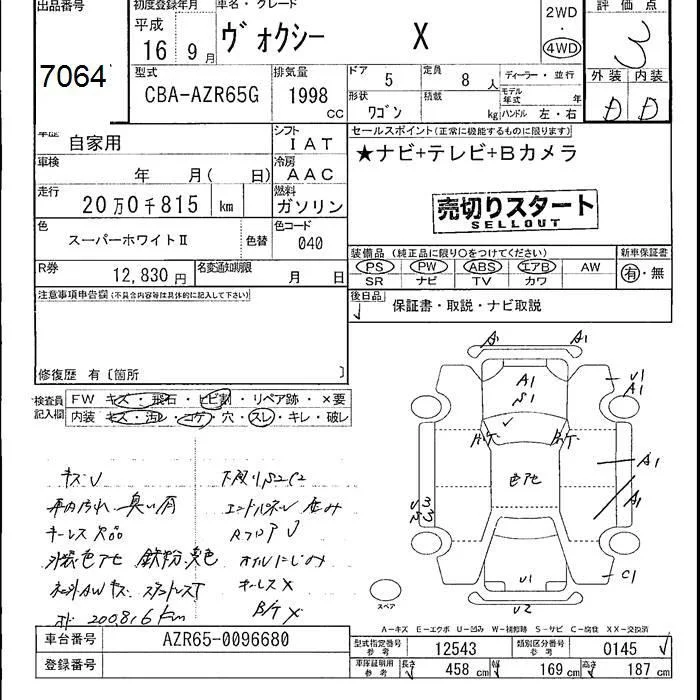 出品番号 7064
初度登録年月 平成 16 9月
車名・グレード ヴォクシー X
2WD・4WD
評価点 3
型式 CBA-AZR65G
排気量 1998 CC
ドア 5 定員 8人
ディーラー・並行
形状 ワゴン 積載 kg
モデル年式 年
ハンドル 左・右
外装 内装
D D
車歴 自家用
シフト IAT
車検 年 月( 日)
冷房 AAC
走行 20万0千815 km
燃料 ガソリン
色 スーパーホワイトⅡ 色替
色コード 040
R券 12,830円
名変通知期限 月 日
セールスポイント(正常に機能するものに限ります)
★ナビ+テレビ+Bカメラ
売切りスタート
SELLOUT
装備品 (純正品に限り○をつけてください)
新車保証書
PS PW ABS エアB AW
有・無
SR ナビ TV カワ
後日品 保証書・取説・ナビ取説
注意事項申告欄(不具合内容等は具体的に記入して下さい)
修復歴 有〔箇所 〕
検査員記入欄
FW キズ・飛石・ヒビ割・リペア跡・×要
内装 キズ・汚レ・コゲ・穴・スレ・キレ・破レ
キズU
下廻りS2C2
車内汚れ 臭い有
キーレス欠品
外装色アセ 鉄粉
オイルにじみ
キーレス×
A1
A1
A1
S1
U1
A1
B/T
色アセ
A1
A1
U1
C1
U2
スペア
A―キズ E―エクボ U―凹み W―補修跡 S―サビ C―腐食 XX―交換済
車台番号 AZR65-0096680
登録番号
型式指定番号 参考 12543
類別区分番号 参考 0145
車庫証明用 参考 長さ 458 cm 幅 169 cm 高さ 187 cm